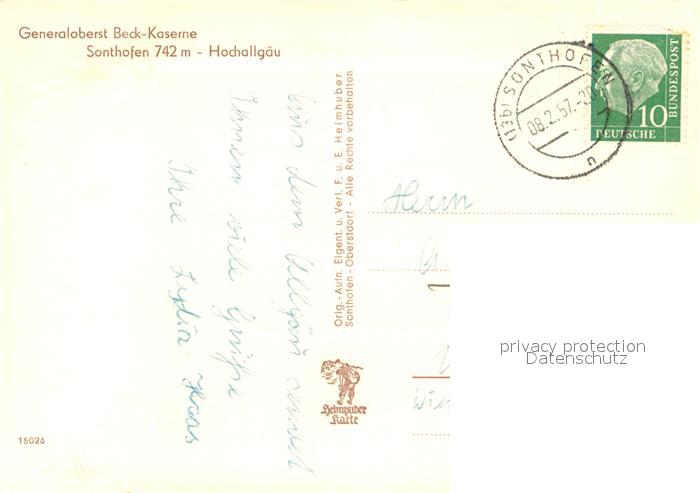 Generaloberst Beck-Kaserne
Sonthofen 742 m - Hochallgäu
(13b) SONTHOFEN
08.2.57.-20
n
10
DEUTSCHE
BUNDESPOST
Aus dem Allgäu sendet
Ihnen viele Grüße
Ihre Lydia
Orig.-Aufn. Eigent. u. Verl. F. u. E. Heimhuber
Sonthofen - Oberstdorf - Alle Rechte vorbehalten
Herrn
Heimhuber
Karte
privacy protection
Datenschutz
15026